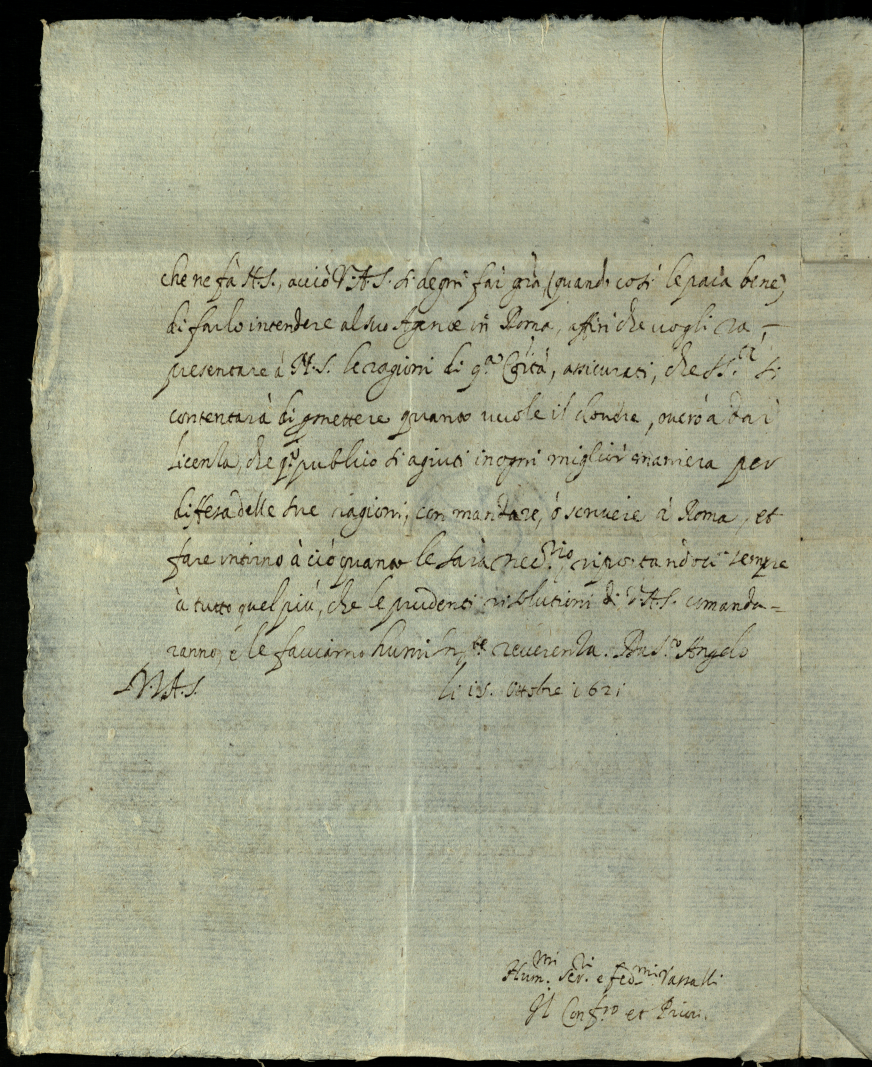 che ne fà N.S., acciò V.A.S. si degni far grà, (quando così le paia bene)
di farlo intendere al suo Agente in Roma, affin che vogli ra-
presentare à N.S. le ragioni di q.a Co:ità, assicurati, che S.S.tà si
contentarà di quanto vuole il dovere, overo à dar
licenza, che q.o publico si agiuti in ogni miglior maniera per
diffesa delle sue ragioni, con mandare, ò scrivere à Roma, et
fare intorno à ciò quanto le sarà nec.rio, riportandoci sempre
à tutto quel più, che le prudenti risolutioni di V.A.S. comanda-
ranno, e le facciamo humil.te reverenza. Angelo
D.V.A.S. li 15. Ottobre 1621
Hum.mi Ser.ri e fed.mi Vassalli
Il Conf.ro et Priori.